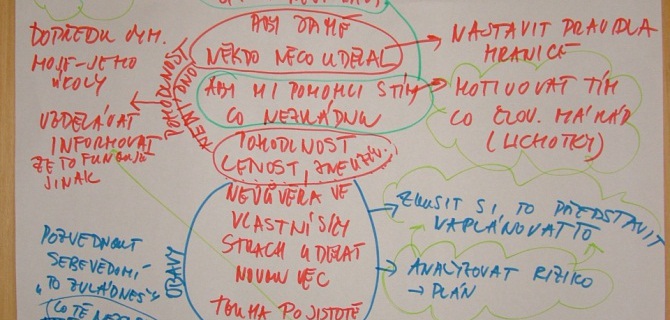 DOPŘEDU DOM.
MOJE-JEHO
ÚKOLY
VZDĚLÁVAT
INFORMOVAT
ŽE TO FUNGUJE
JINAK
POHODLNOST
ABY ZA MĚ
NĚKDO NĚCO UDĚLAL
ABY MI POMOHLI S TÍM
CO NEZVLÁDNU
POHODLNOST
LENOST, ZNEUŽIV.
NASTAVIT PRAVIDLA
HRANICE
MOTIVOVAT TÍM
CO ČLOV. MÁ RÁD
(LICHOTKY)
OBAVY
NEDŮVĚRA VE
VLASTNÍ SÍLY
STRACH UDĚLAT
NOVOU VĚC
TOUHA PO JISTOTĚ
ZKUSIT SI TO PŘEDSTAVIT
NAPLÁNOVAT TO
ANALÝZOVAT RIZIKO
→ PLÁN
POZVEDNOUT
SEBEVĚDOMÍ
"TO ZVLÁDNEŠ"
CO TĚ